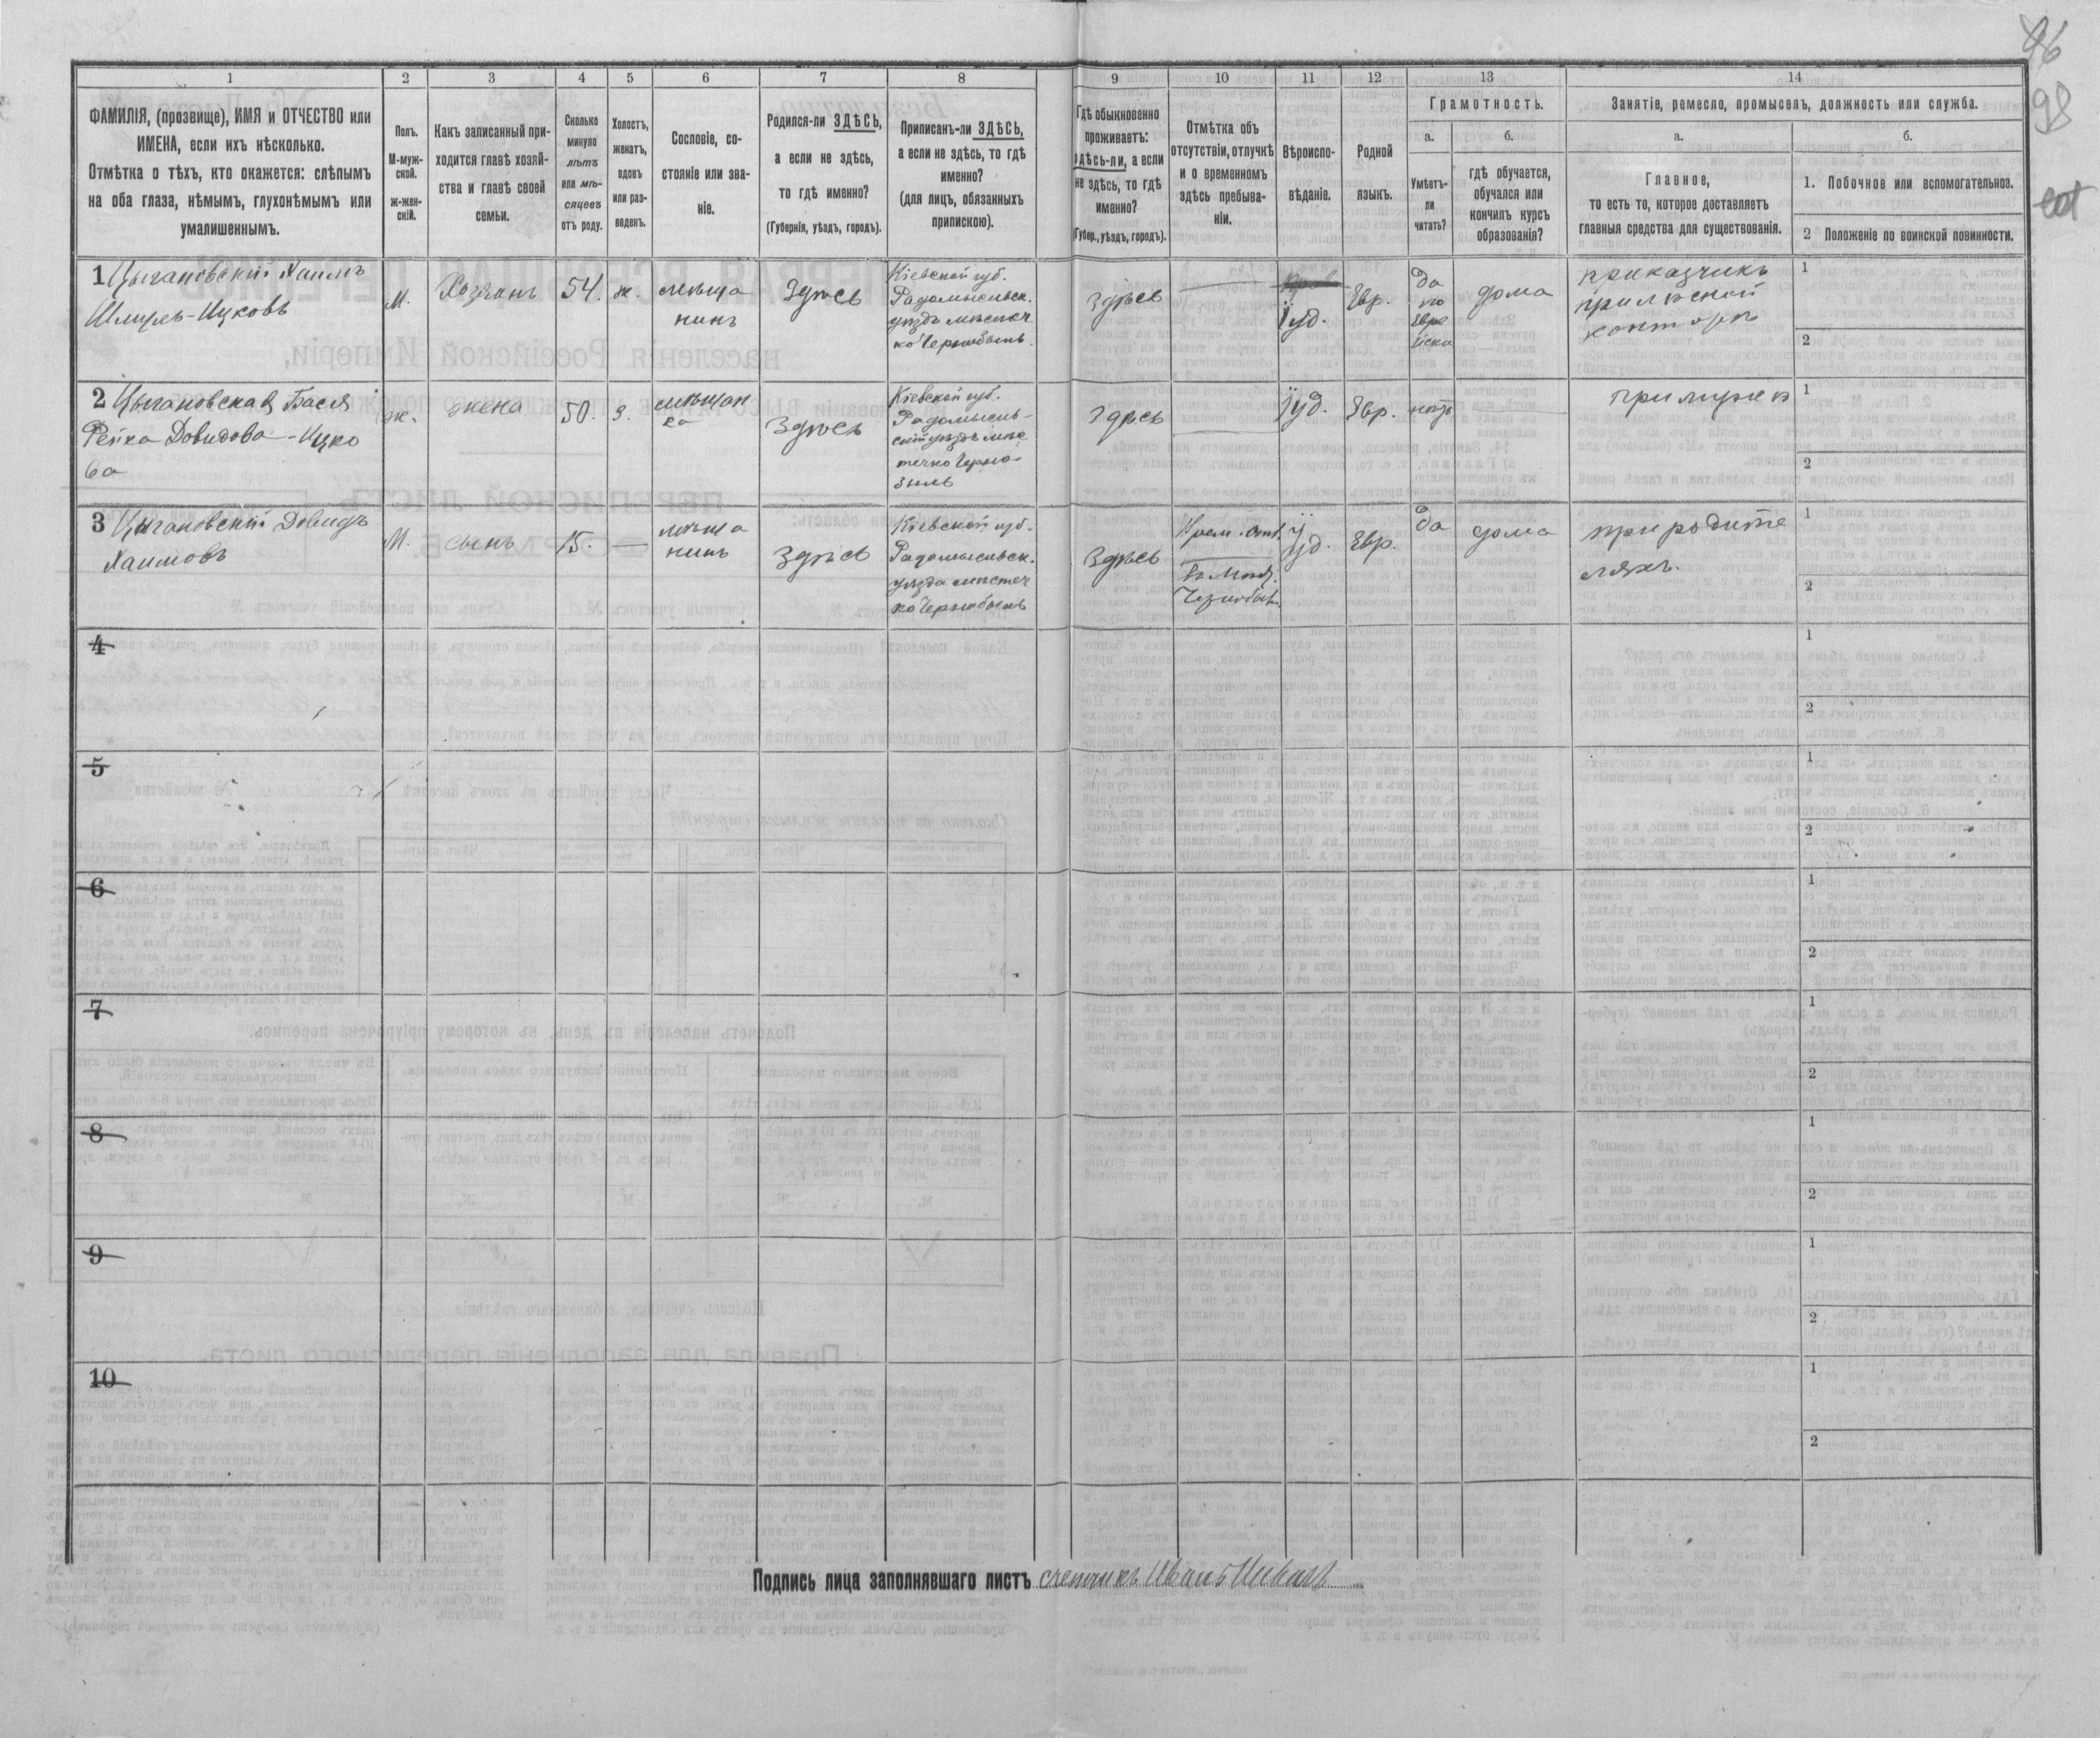 96
98
1
2
3
4
5
6
7
8
9
10
11
12
13
14
ФАМИЛІЯ, (прозвище), ИМЯ и ОТЧЕСТВО или
ИМЕНА, если ихъ нѣсколько.
Отмѣтка о тѣхъ, кто окажется: слѣпымъ
на оба глаза, нѣмымъ, глухонѣмымъ или
умалишеннымъ.
Полъ.
М-муж-
ской.
ж-жен-
скій.
Какъ записанный при-
ходится главѣ хозяй-
ства и главѣ своей
семьи.
Сколько
минуло
лѣтъ
или мѣ-
сяцевъ
отъ роду.
Холостъ,
женатъ,
вдовъ
или раз-
веденъ.
Сословіе, со-
стояніе или зва-
ніе.
Родился-ли ЗДѢСЬ,
а если не здѣсь,
то гдѣ именно?
(Губернія, уѣздъ, городъ).
Приписанъ-ли ЗДѢСЬ,
а если не здѣсь, то гдѣ
именно?
(для лицъ, обязанныхъ
припискою).
Гдѣ обыкновенно
проживаетъ:
здѣсь-ли, а если
не здѣсь, то гдѣ
именно?
(Губер., уѣздъ, городъ).
Отмѣтка объ
отсутствіи, отлучкѣ
и о временномъ
здѣсь пребыва-
ніи.
Вѣроиспо-
вѣданіе.
Родной
языкъ.
Грамотность.
а.
Умѣетъ-
ли
читать?
б.
гдѣ обучается,
обучался или
кончилъ курсъ
образованія?
Занятіе, ремесло, промыселъ, должность или служба.
а.
Главное,
то есть то, которое доставляетъ
главныя средства для существованія.
б.
1. Побочное или вспомогательное.
2 Положеніе по воинской повинности.
1 Цыгановскій Хаимъ
Шмуль-Ицковъ
М.
Хозяинъ
54.
ж.
мѣща
нинъ
Здѣсь
Кіевской губ.
Радомысльск.
уѣздъ мѣстеч
ко Чернобыль
Здѣсь
Іуд.
Евр.
да
по
Евре
йски
дома
приказчикъ
при лѣсной
конторѣ
1
2
2 Цыгановская Бася
Рейка Довидова-Ицко
ва
ж.
жена
50.
З.
мѣщан
ка
Здѣсь
Кіевской губ.
Радомысль-
скій уѣздъ мѣс
течко Черно-
быль
Здѣсь
Іуд.
Евр.
нѣтъ
при мужѣ
1
2
3 Цыгановскій Довидъ
Хаимовъ
М.
сынъ
15.
—
мѣща
нинъ
Здѣсь
Кіевской губ.
Радомысльск.
уѣзда мѣстеч
ко Чернобыль
Здѣсь
Врем. отл.
въ Мѣст.
Чернобыл.
Іуд.
Евр.
да
дома
при родите
ляхъ.
1
2
4
1
2
5
1
2
6
1
2
7
1
2
8
1
2
9
1
2
10
1
2
Подпись лица заполнявшаго листъ счетчикъ Иванъ